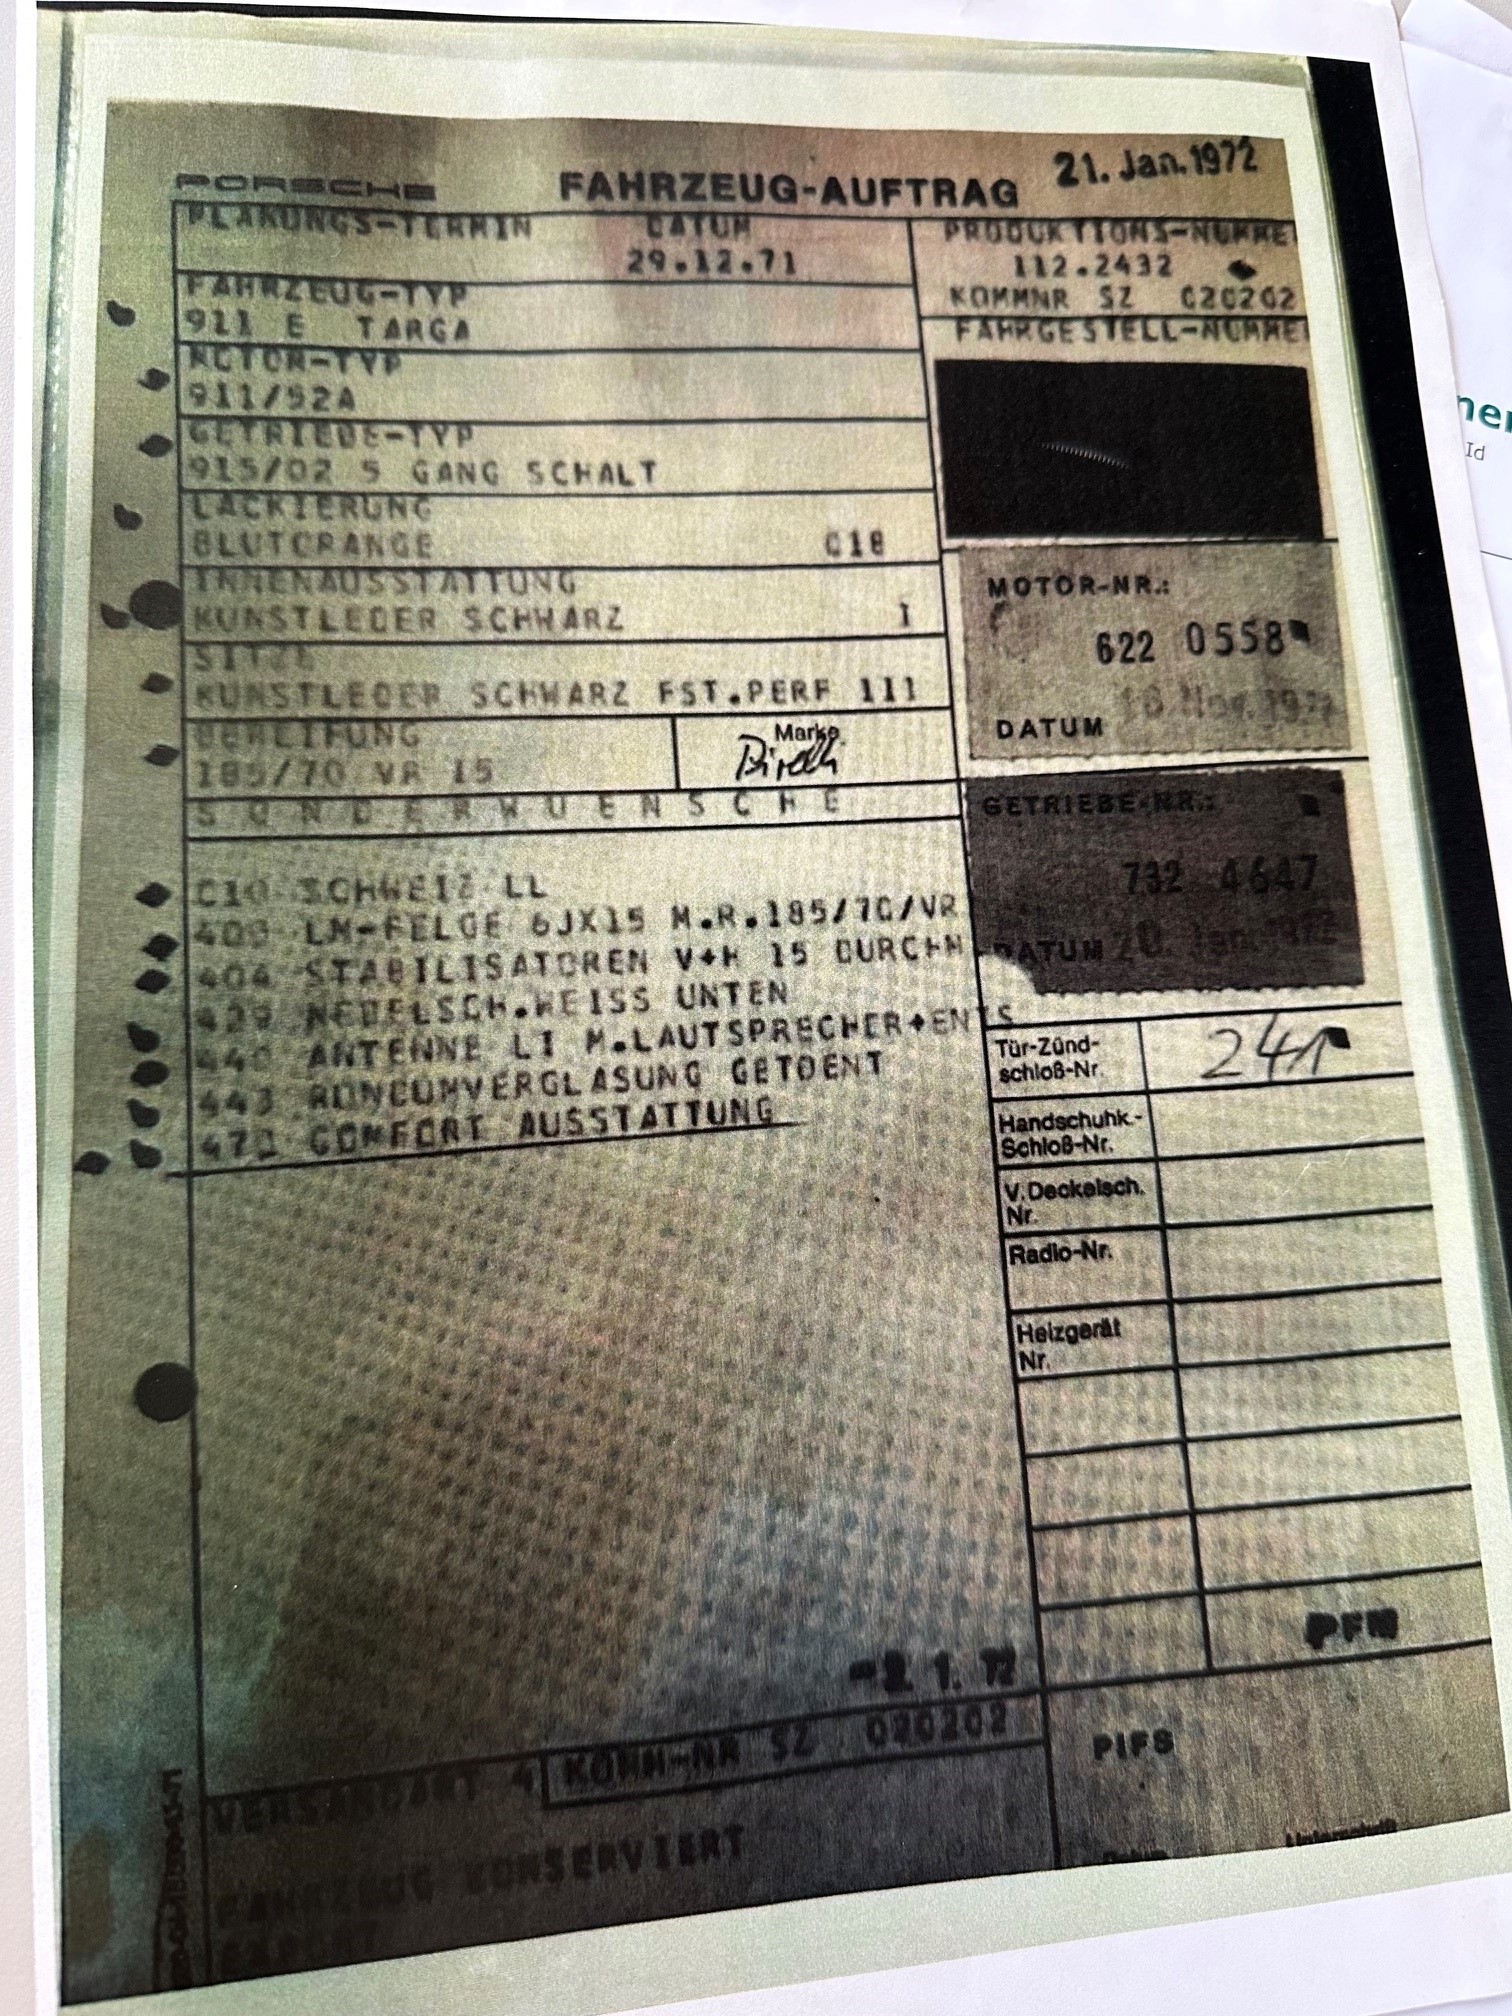 PORSCHE FAHRZEUG-AUFTRAG 21. Jan. 1972
PLANUNGS-TERMIN DATUM
29.12.71
PRODUKTIONS-NUMME
112.2432
KOMMNR SZ 020202
FAHRZEUG-TYP
911 E TARGA
FAHRGESTELL-NUMME
MOTOR-TYP
911/52A
GETRIEBE-TYP
915/02 5 GANG SCHALT
LACKIERUNG
BLUTORANGE 018
INNENAUSSTATTUNG
KUNSTLEDER SCHWARZ 1
SITZE
KUNSTLEDER SCHWARZ FST.PERF 111
BEREIFUNG
185/70 VR 15
Marke
Pirelli
SONDERWUENSCHE
C10 SCHWEIZ LL
LM-FELGE 6JX15 M.R.185/70/VR
404 STABILISATOREN V+H 15 DURCHM
NEBELSCH.WEISS UNTEN
440 ANTENNE LI M.LAUTSPRECHER+ENTS
443 RUNDUMVERGLASUNG GETOENT
COMFORT AUSSTATTUNG
MOTOR-NR.:
622 0558
DATUM 18 Nov. 197
GETRIEBE-NR.:
732 4647
DATUM 20. Jan. 1972
Tür-Zünd-
schloß-Nr.
241
Handschuhk.-
Schloß-Nr.
V.Deckelsch.
Nr.
Radio-Nr.
Heizgerät
Nr.
PFN
1. 72
VERSANDART 4 KOMM-NR SZ 020202
PIFS
FAHRZEUG KONSERVIERT
Unterschrift
Datum
ner
Id